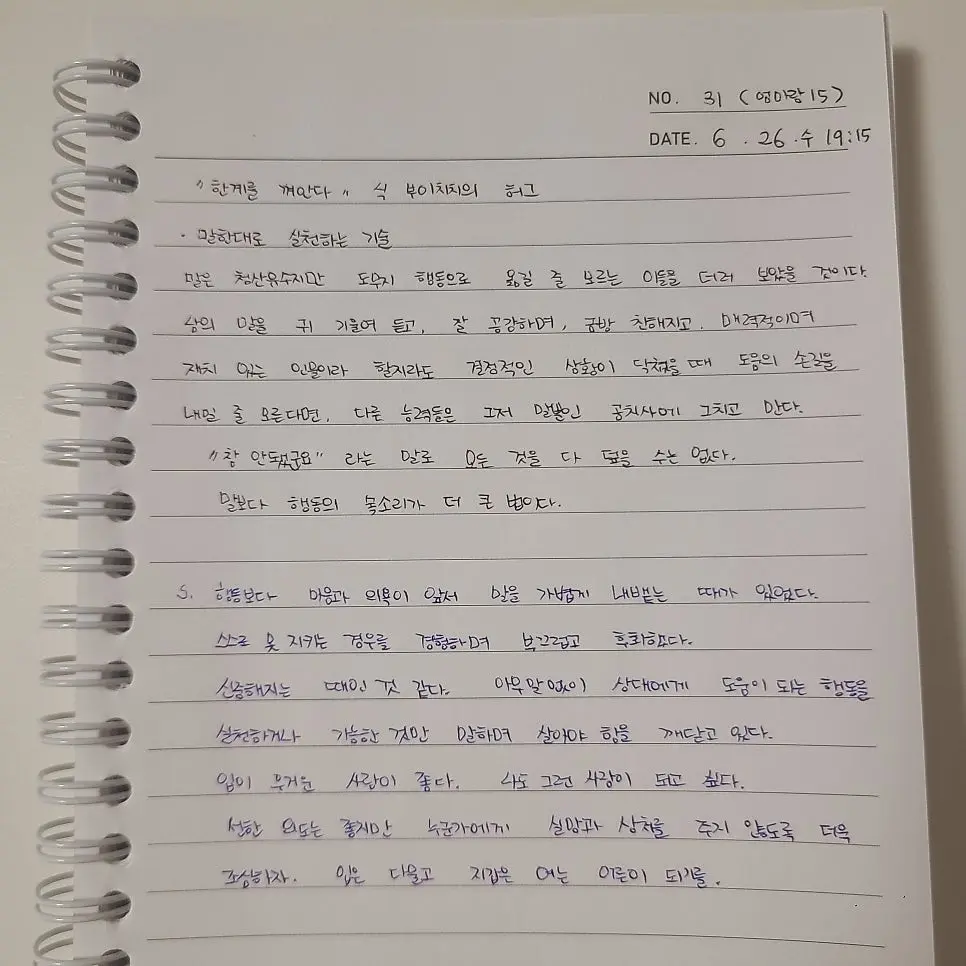 NO. 31 (엄마랑 15)
DATE. 6 . 26 . 수 19:15
"한계를 껴안다" 식 부이치치의 허그
· 말한대로 실천하는 기술
말은 청산유수지만 도무지 행동으로 옮길 줄 모르는 이들을 더러 보았을 것이다.
남의 말을 귀 기울여 듣고, 잘 공감하며, 금방 친해지고, 매력적이며
재치 있는 인물이라 할지라도 결정적인 상황이 닥쳤을 때 도움의 손길을
내밀 줄 모른다면, 다른 능력들은 그저 말뿐인 공치사에 그치고 만다.
"참 안됐군요" 라는 말로 모든 것을 다 덮을 수는 없다.
말보다 행동의 목소리가 더 큰 법이다.
S. 행동보다 마음과 의욕이 앞서 말을 가볍게 내뱉는 때가 있었다.
스스로 못 지키는 경우를 경험하며 부끄럽고 후회했다.
신중해지는 때인 것 같다. 아무말없이 상대에게 도움이 되는 행동을
실천하거나 가능한 것만 말하며 살아야 함을 깨닫고 있다.
입이 무거운 사람이 좋다. 나도 그런 사람이 되고 싶다.
선한 의도는 좋지만 누군가에게 실망과 상처를 주지 않도록 더욱
조심하자. 입은 다물고 지갑은 여는 어른이 되기를.